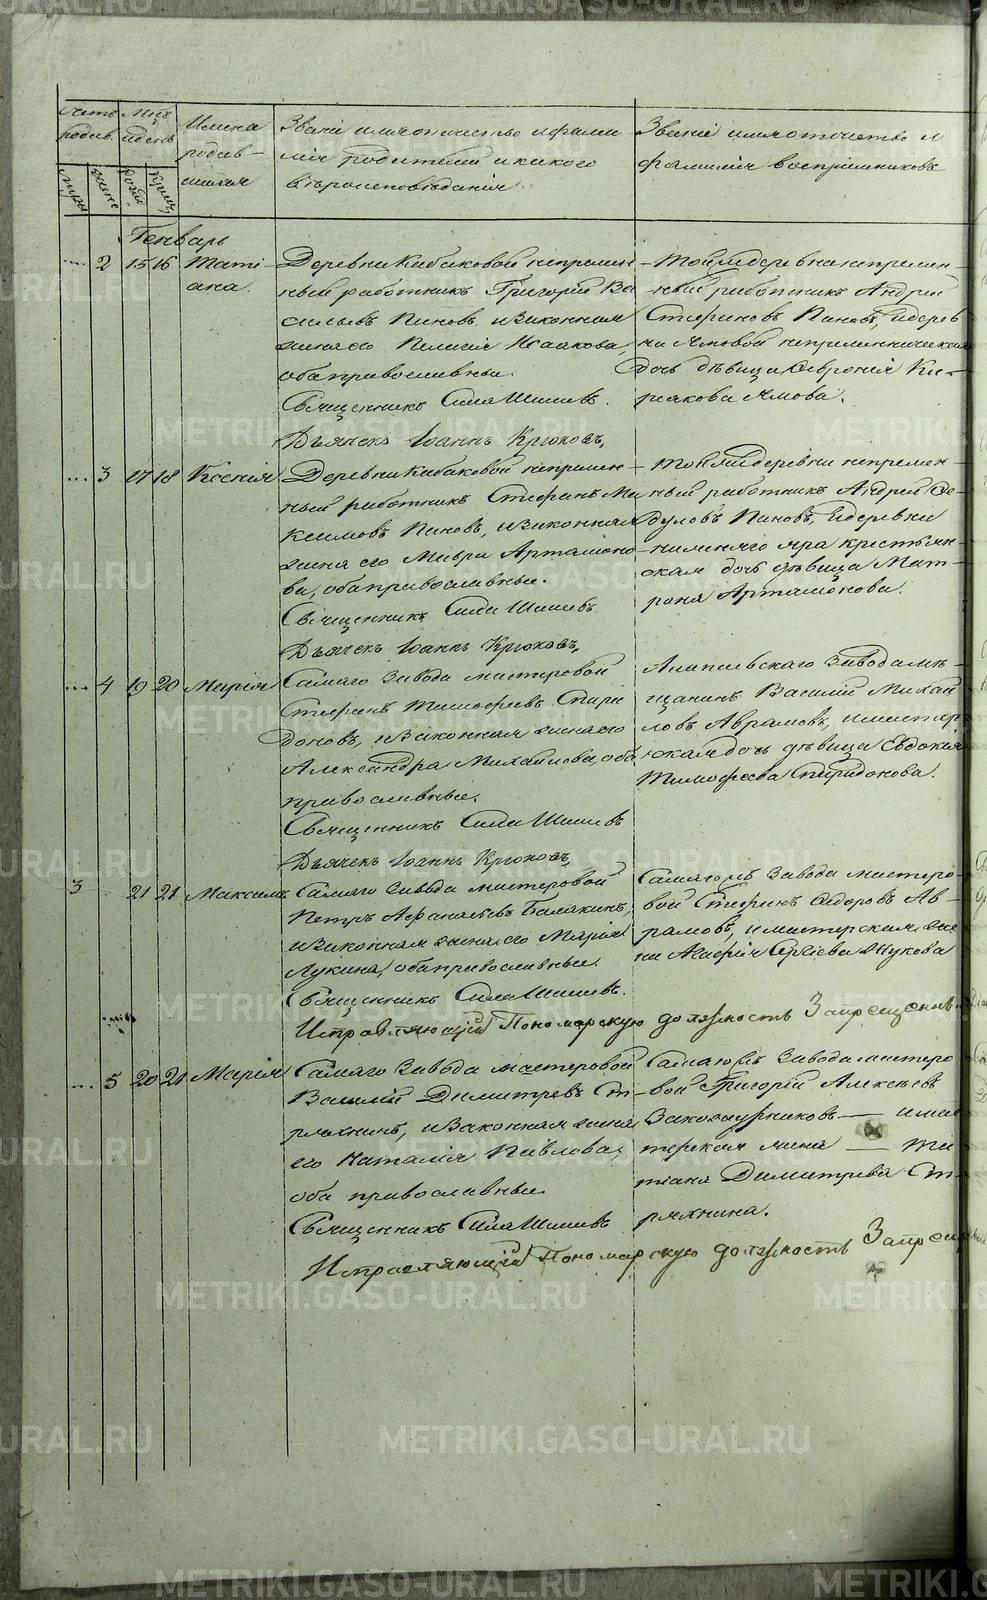 METRIKI.GASO-URAL.RU
Счетъ родив.
Мѣс. и день
Имена родив-
шихся
Званіе имя отчество и фами-
лія родителей и какого
вѣроисповѣданія.
Званіе имя отчество и
фамилія воспріемниковъ
Генварь
2 15 16 Тати-
ана.
Деревни Кабаковой непремен-
ный работникъ Григорій Ва-
сильевъ Пановъ, и законная
жена его Пелагія Исаакова,
оба православные.
Священникъ Сила Шишевъ.
Дьячекъ Іоаннъ Крюковъ,
Той же деревни непремен-
ный работникъ Андрей
Стефановъ Пановъ, и дерев-
ни Ямовой непременническая
дочь дѣвица Феѵронія Ки-
риякова Ямова.
3 17 18 Ксенія
Деревни Кабаковой непремен-
ный работникъ Стефанъ Ма-
ксимовъ Пановъ, и законная
жена его Мавра Артамоно-
ва, оба православные.
Священникъ Сила Шишевъ.
Дьячекъ Іоаннъ Крюковъ,
Той же деревни непремен-
ный работникъ Андрей Фе-
дуловъ Пановъ, и деревни
яра крестьян-
ская дочь дѣвица Мат-
рона Артамонова.
4 19 20 Марія
Самаго Завода мастеровой
Стефанъ Тимофеевъ Спири-
доновъ, и законная жена его
Александра Михайлова, оба
православные.
Священникъ Сила Шишевъ
Дьячекъ Іоаннъ Крюковъ,
Алапаевскаго Завода мѣ-
щанинъ Василій Михай-
ловъ Аврамовъ, и мастер-
ская дочь дѣвица Евдокія
Тимофеева Спиридонова.
3 21 21 Максимъ
Самаго Завода мастеровой
Петръ Афанасьевъ Балакинъ,
и законная жена его Марія
Лукина, оба православные.
Священникъ Сила Шишевъ.
Исправляющій Пономарскую должность
Самаго жъ Завода мастеро-
вой Стефанъ Федоровъ Ав-
рамовъ, и мастерская же-
на Агафія Сергіева Жукова
5 20 21 Марія
Самаго Завода мастеровой
Василій Димитревъ Ст-
ряхнинъ, и законная жена
его Наталія Павлова,
оба православные.
Священникъ Сила Шишевъ
Исправляющій Пономарскую должность
Самаго жъ Завода мастеро-
вой Григорій Алексѣевъ
Закожурниковъ — и мас-
терская жена — Та-
тіана Димитрева Ст-
ряхнина.